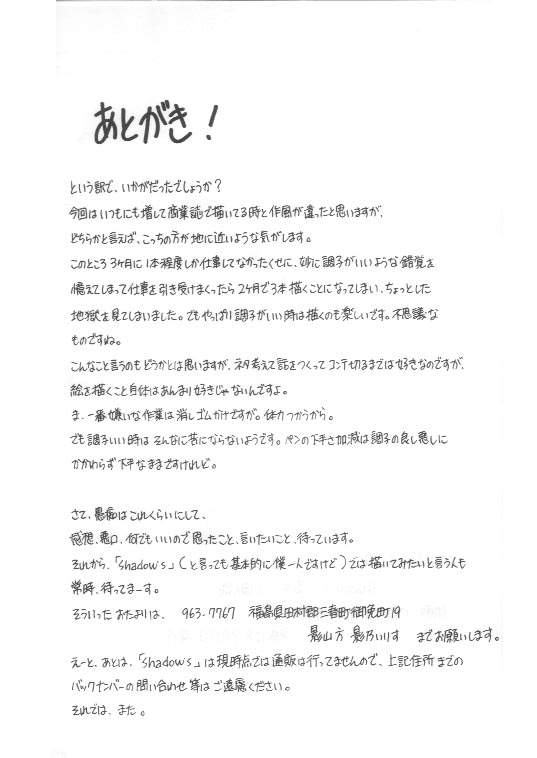 あとがき!
という訳で、いかがだったでしょうか?
今回はいつもにも増して商業誌で描いてる時と作風が違ったと思いますが、
どちらかと言えば、こっちの方が地に近いような気がします。
このところ3ヶ月に1本程度しか仕事してなかったくせに、妙に調子がいいような錯覚を
憶えてしまって仕事を引き受けまくったら2ヶ月で3本描くことになってしまい、ちょっとした
地獄を見てしまいました。でもやっぱり調子がいい時は描くのも楽しいです。不思議な
ものですね。
こんなこと言うのもどうかとは思いますが、ネタ考えて話をつくってコンテ切るまでは好きなのですが、
絵を描くこと自体はあんまり好きじゃないんですよ。
ま、一番嫌いな作業は消しゴムかけですが。体力つかうから。
でも調子いい時はそんなに苦にならないようです。ペンの下手さ加減は調子の良し悪しに
かかわらず下手なままですけれど。
さて、愚痴はこれくらいにして、
感想、悪口、何でもいいので思ったこと、言いたいこと、待っています。
それから、「shadow's」(と言っても基本的に僕一人ですけど)では描いてみたいと言う人も
常時、待ってまーす。
そういったおたよりは、 963-7767 福島県田村郡三春町御免町19
影山方 影乃いりす までお願いします。
えーと、あとは、「shadow's」は現時点では通販は行ってませんので、上記住所までの
バックナンバーの問い合わせ等はご遠慮ください。
それでは、また。